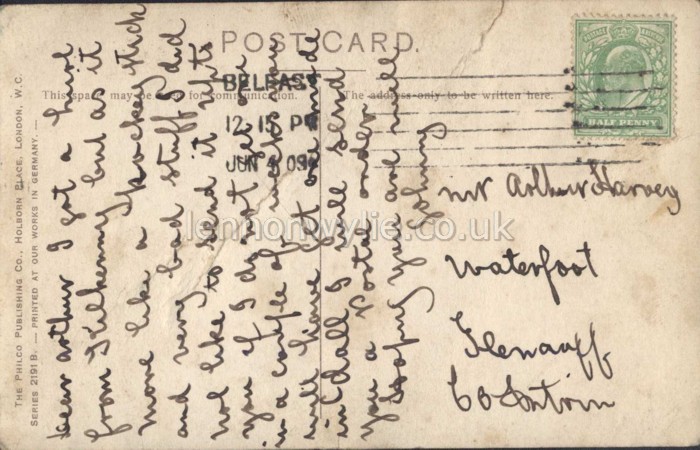 POST CARD.
This space may be used for communication.
The address only to be written here.
BELFAST
12.15 PM
JUN 4 09
POSTAGE & REVENUE
HALF PENNY
THE PHILCO PUBLISHING CO., HOLBORN PLACE, LONDON, W.C.
SERIES 2191 B. — PRINTED AT OUR WORKS IN GERMANY.
Dear arthur I got a hurl
from Kilkenny but as it
more like a hockey stick
and very bad stuff I did
not like to send it up to
you if I do not get one
in a couple of weeks you
will have to get one made
in C'dall I will send
you a Postal order
Hoping you are well
Johnny
mr Arthur Harvey
Waterfoot
Glenariff
Co Antrim
lennonwylie.co.uk